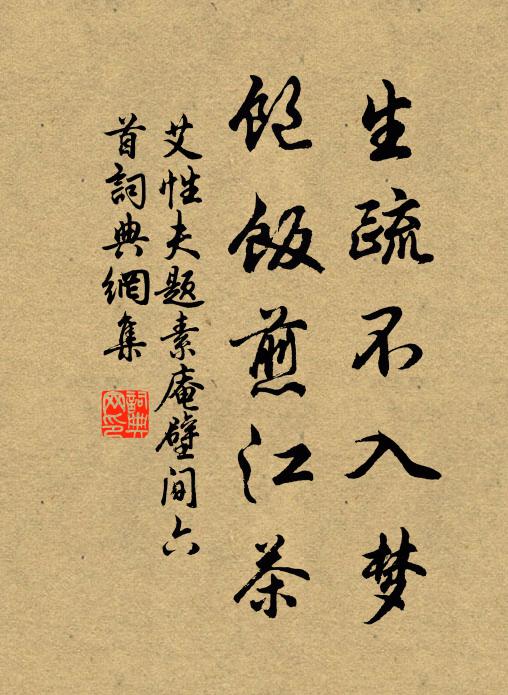 生疏不入梦
饱饭煎江茶
艾性夫题素庵壁间六
首词典网集
词典网印